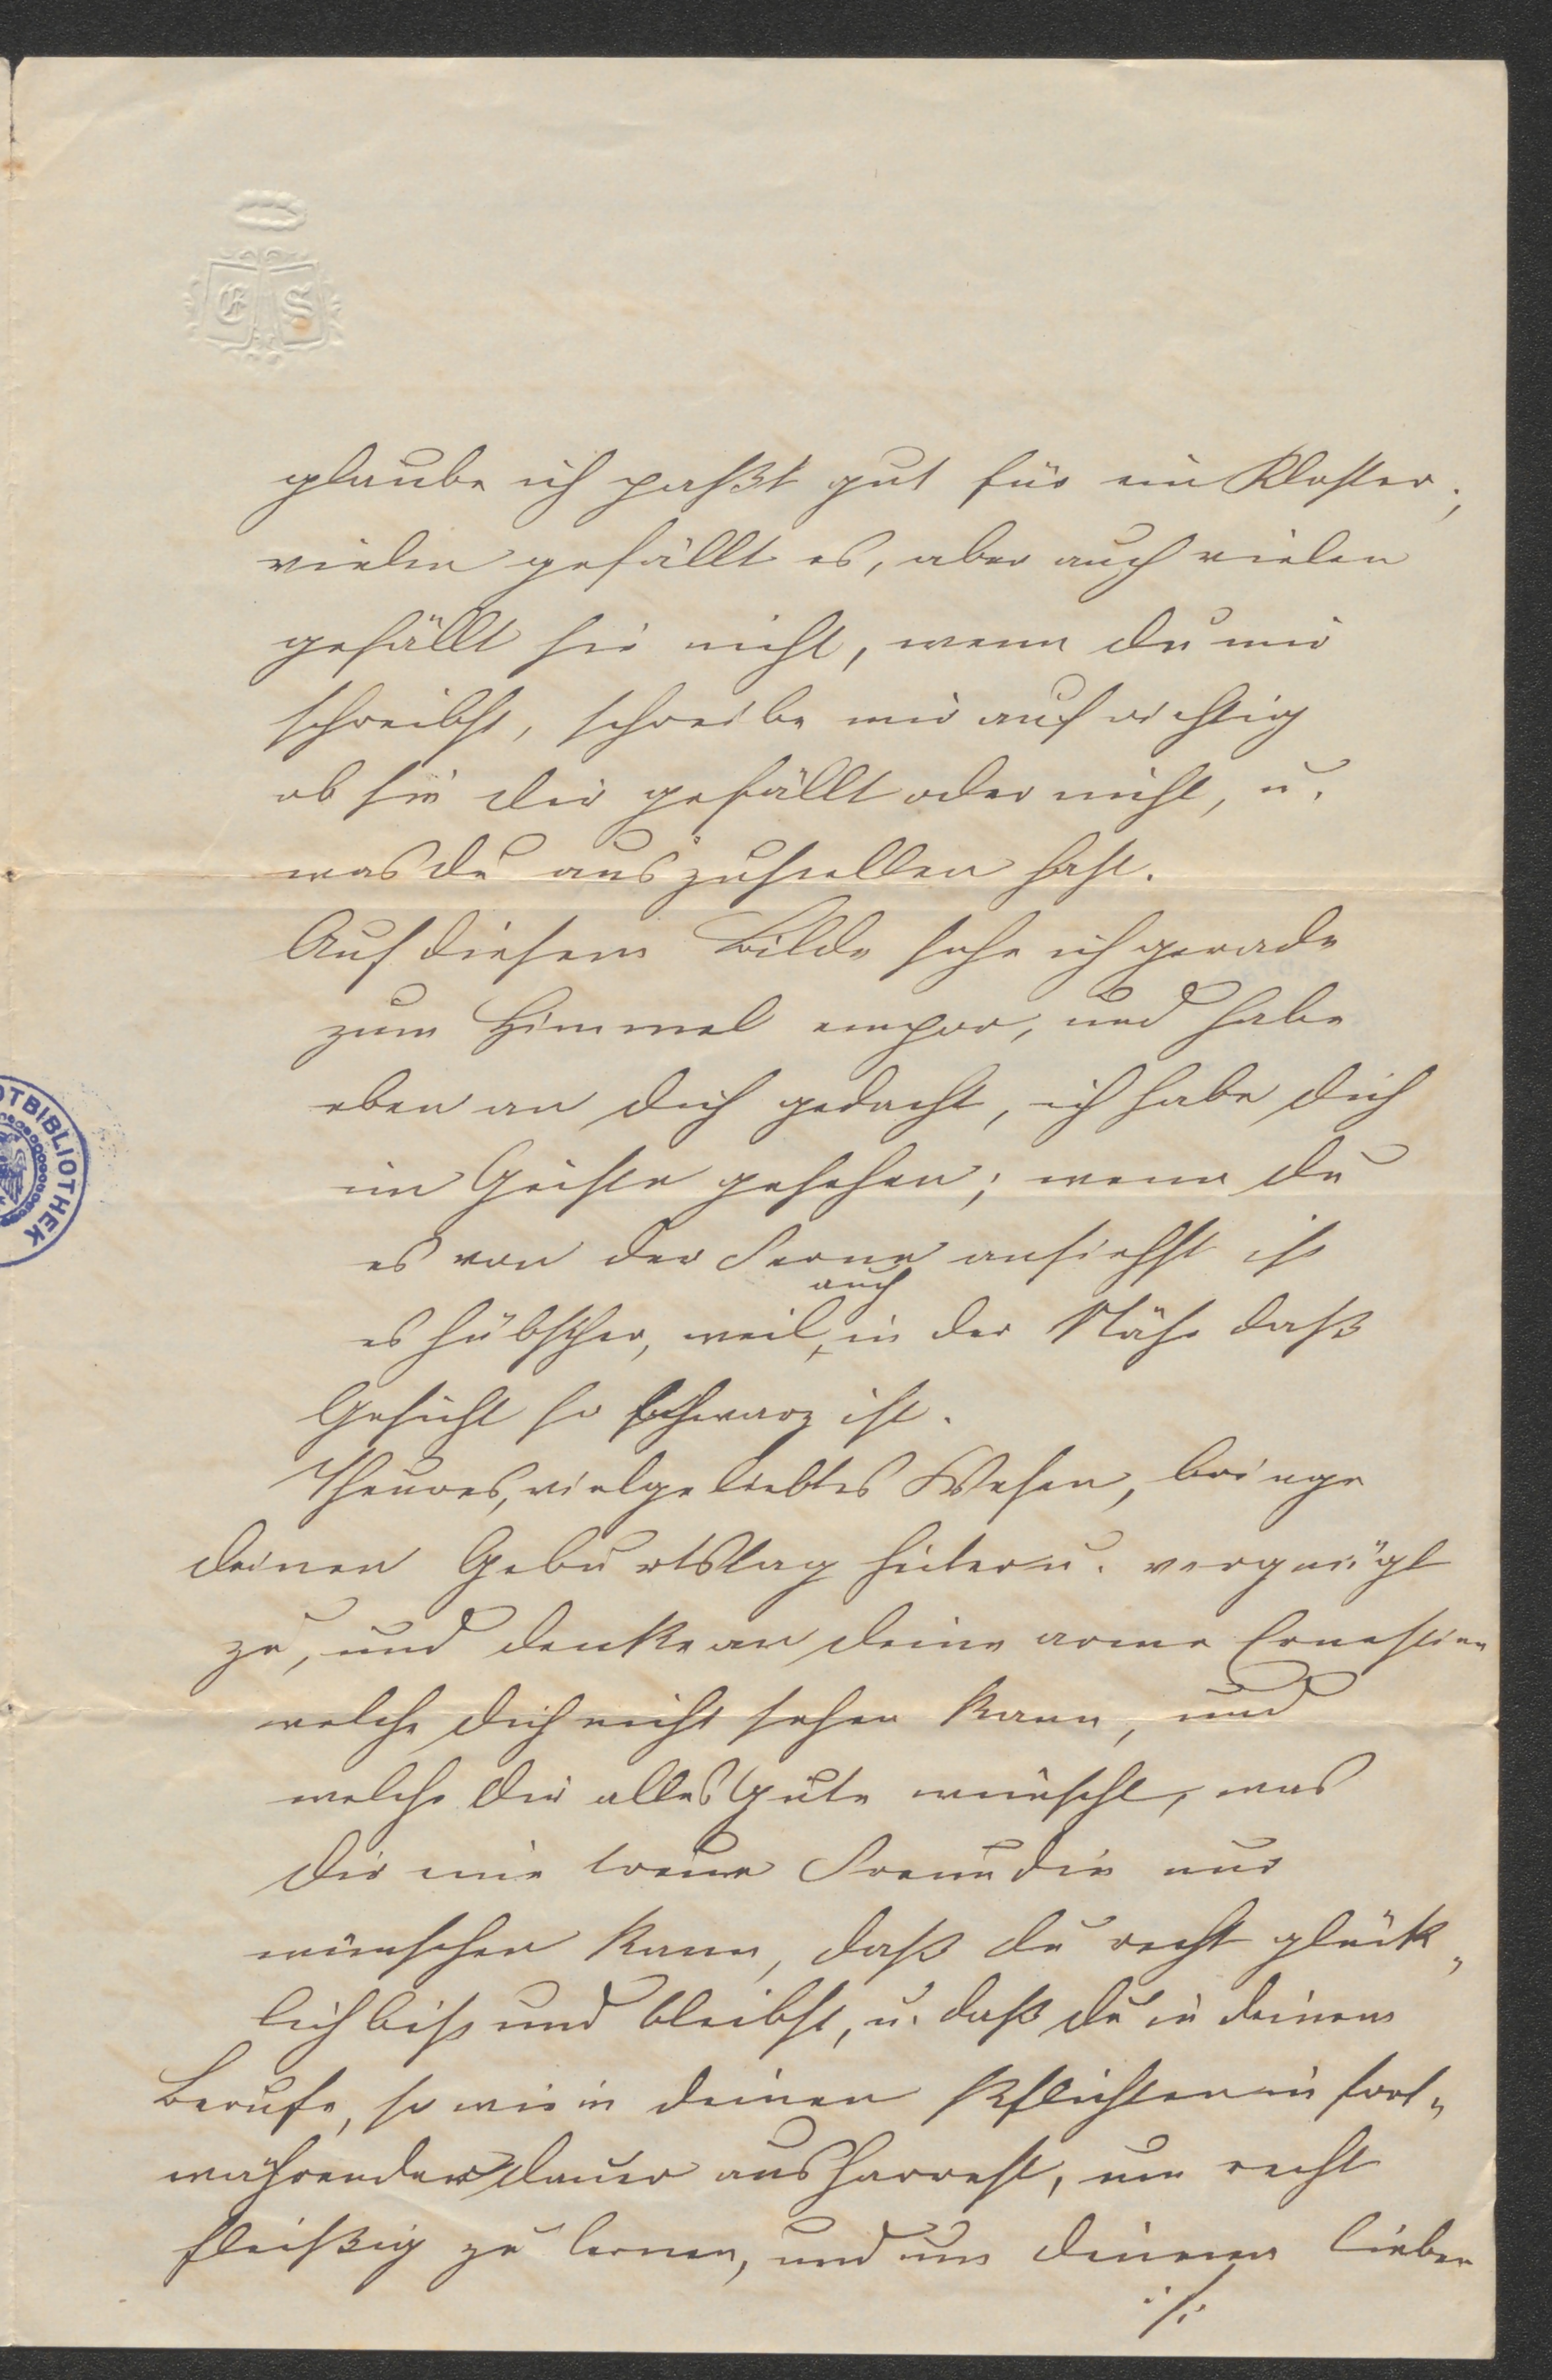 E S
glaube ich paßt gut für ein Kloster;
vielen gefällt es, aber auch vielen
gefällt sie nicht, wenn du mir
schreibst, schreibe mir aufrichtig
ob sie dir gefällt oder nicht, u.
was du auszustellen hast.
Auf diesem Bilde sehe ich gerade
zum Himmel empor, und habe
eben an dich gedacht, ich habe dich
im Geiste gesehen; wenn du
es von der Ferne ansiehst ist
auch
es hübscher, weil, in der Nähe daß
Gesicht so schwarz ist.
Theures, vielgeliebtes Wesen, bringe
deinen Geburtstag heiter u. vergnügt
zu, und denke an deine arme Ernestine
welche dich nicht sehen kann, und
welche dir alles Gute wünscht, was
dir eine treue Freundin nur
wünschen kann, daß du recht glück„
lich bist und bleibst, u. daß du in deinem
Berufe, so wie in deinen Pflichten in fort„
währender Dauer ausharrest, um recht
fleißig zu lernen, und um deinem lieben
./.
OTBIBLIOTHEK